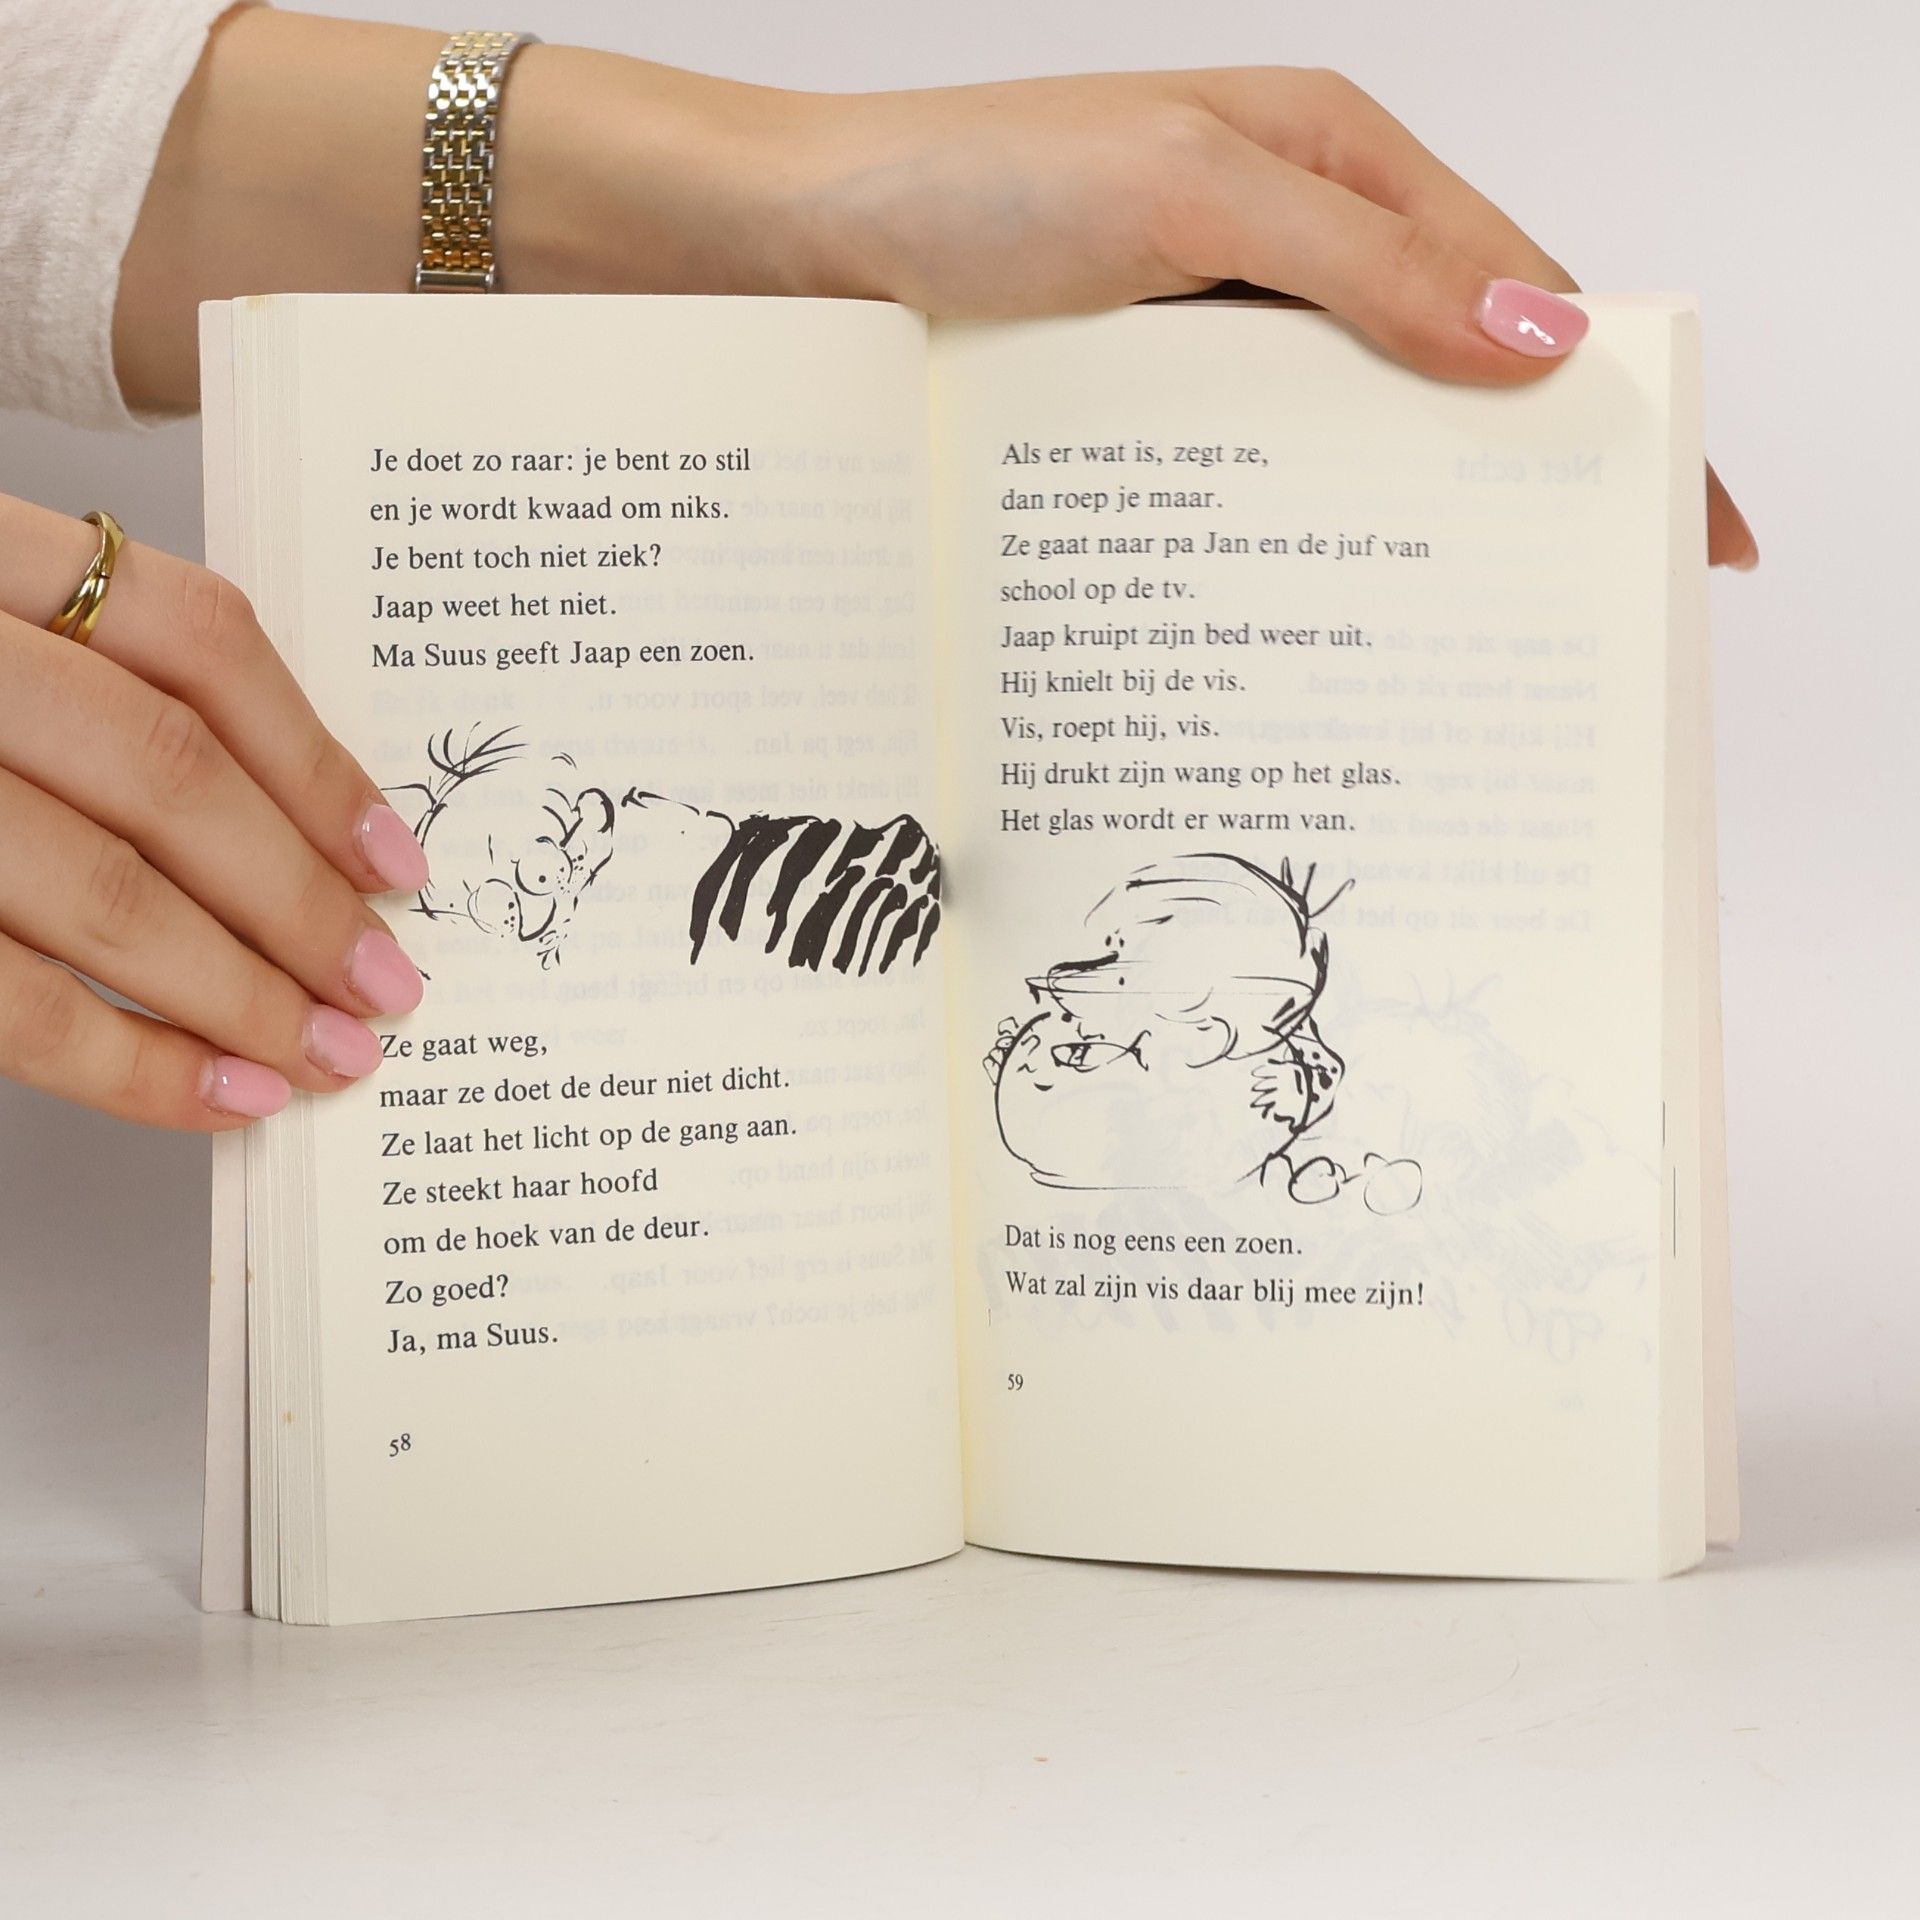 Je doet zo raar: je bent zo stil
en je wordt kwaad om niks.
Je bent toch niet ziek?
Jaap weet het niet.
Ma Suus geeft Jaap een zoen.
Ze gaat weg,
maar ze doet de deur niet dicht.
Ze laat het licht op de gang aan.
Ze steekt haar hoofd
om de hoek van de deur.
Zo goed?
Ja, ma Suus.
58
Als er wat is, zegt ze,
dan roep je maar.
Ze gaat naar pa Jan en de juf van
school op de tv.
Jaap kruipt zijn bed weer uit.
Hij knielt bij de vis.
Vis, roept hij, vis.
Hij drukt zijn wang op het glas.
Het glas wordt er warm van.
Dat is nog eens een zoen.
Wat zal zijn vis daar blij mee zijn!
59